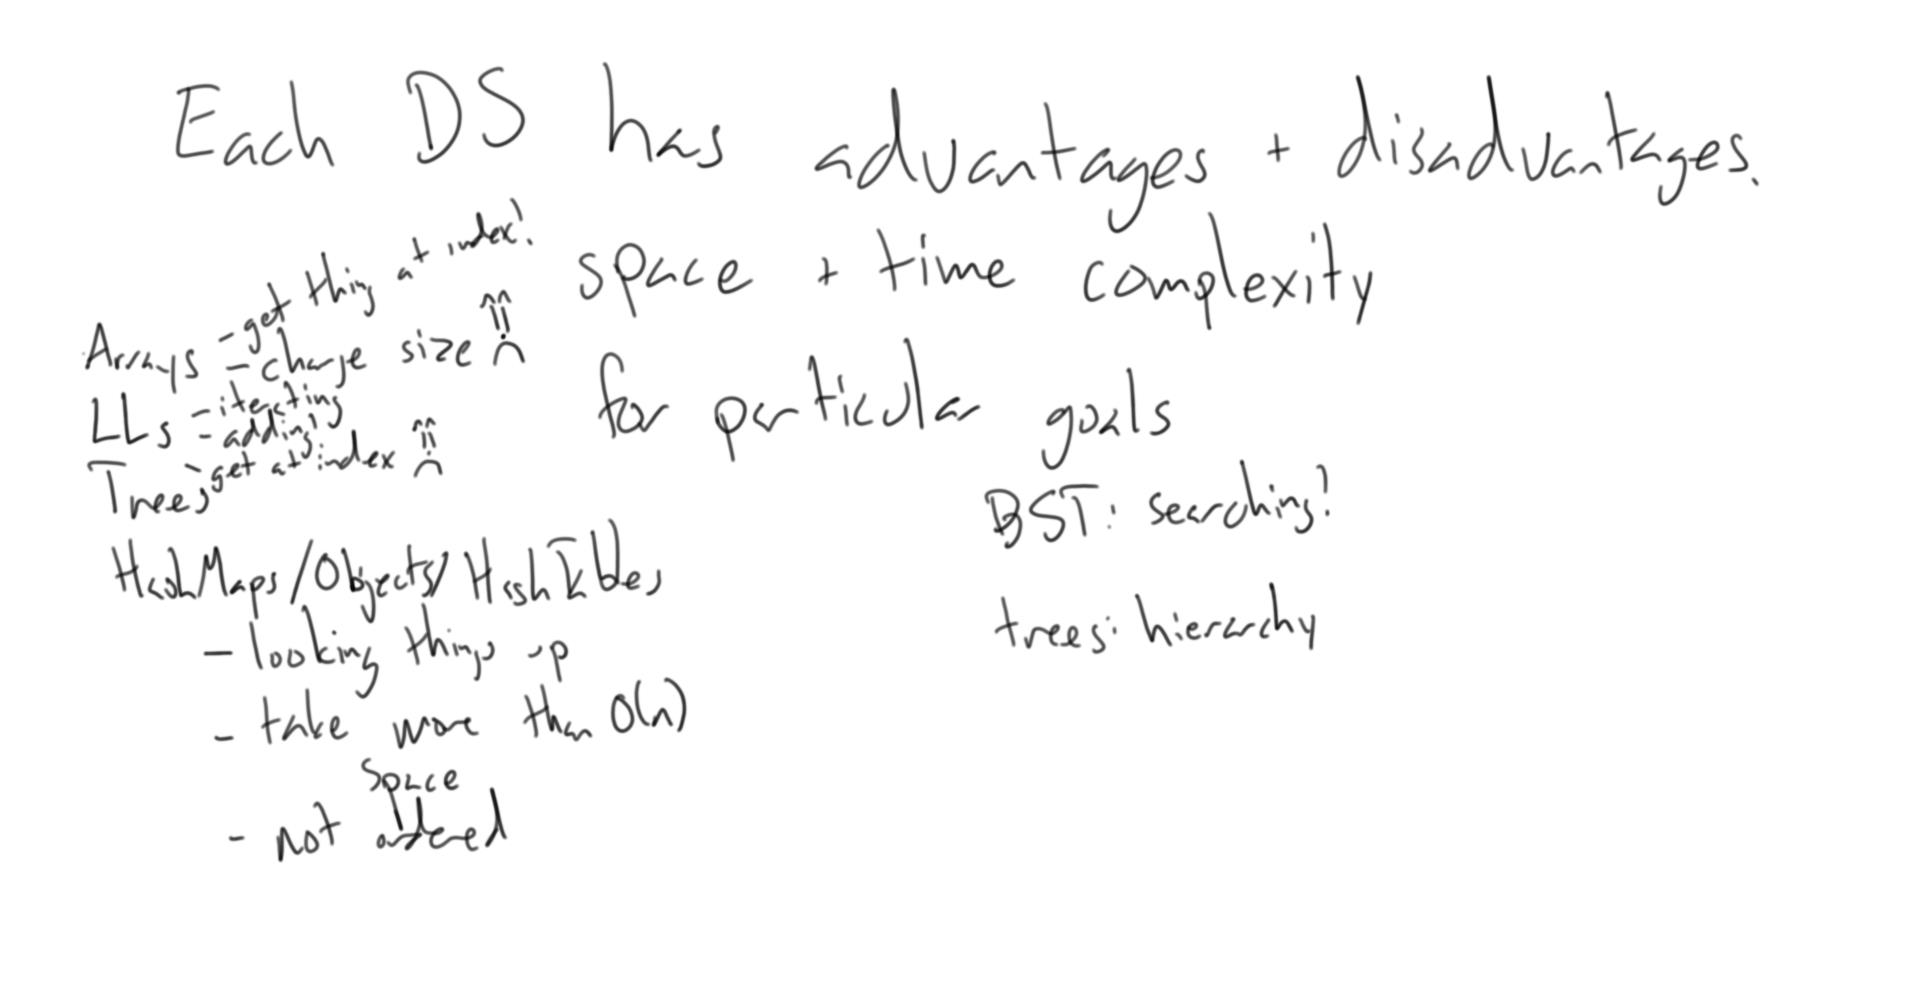 Each DS has advantages + disadvantages.
space + time complexity
for particular goals
Arrays - get thing at index!
- change size
LLs - iterating
- adding
- get at index
Trees
HashMaps/Objects/HashTables
- looking things up
- take more than O(n)
space
- not ordered
BST: searching!
trees: hierarchy